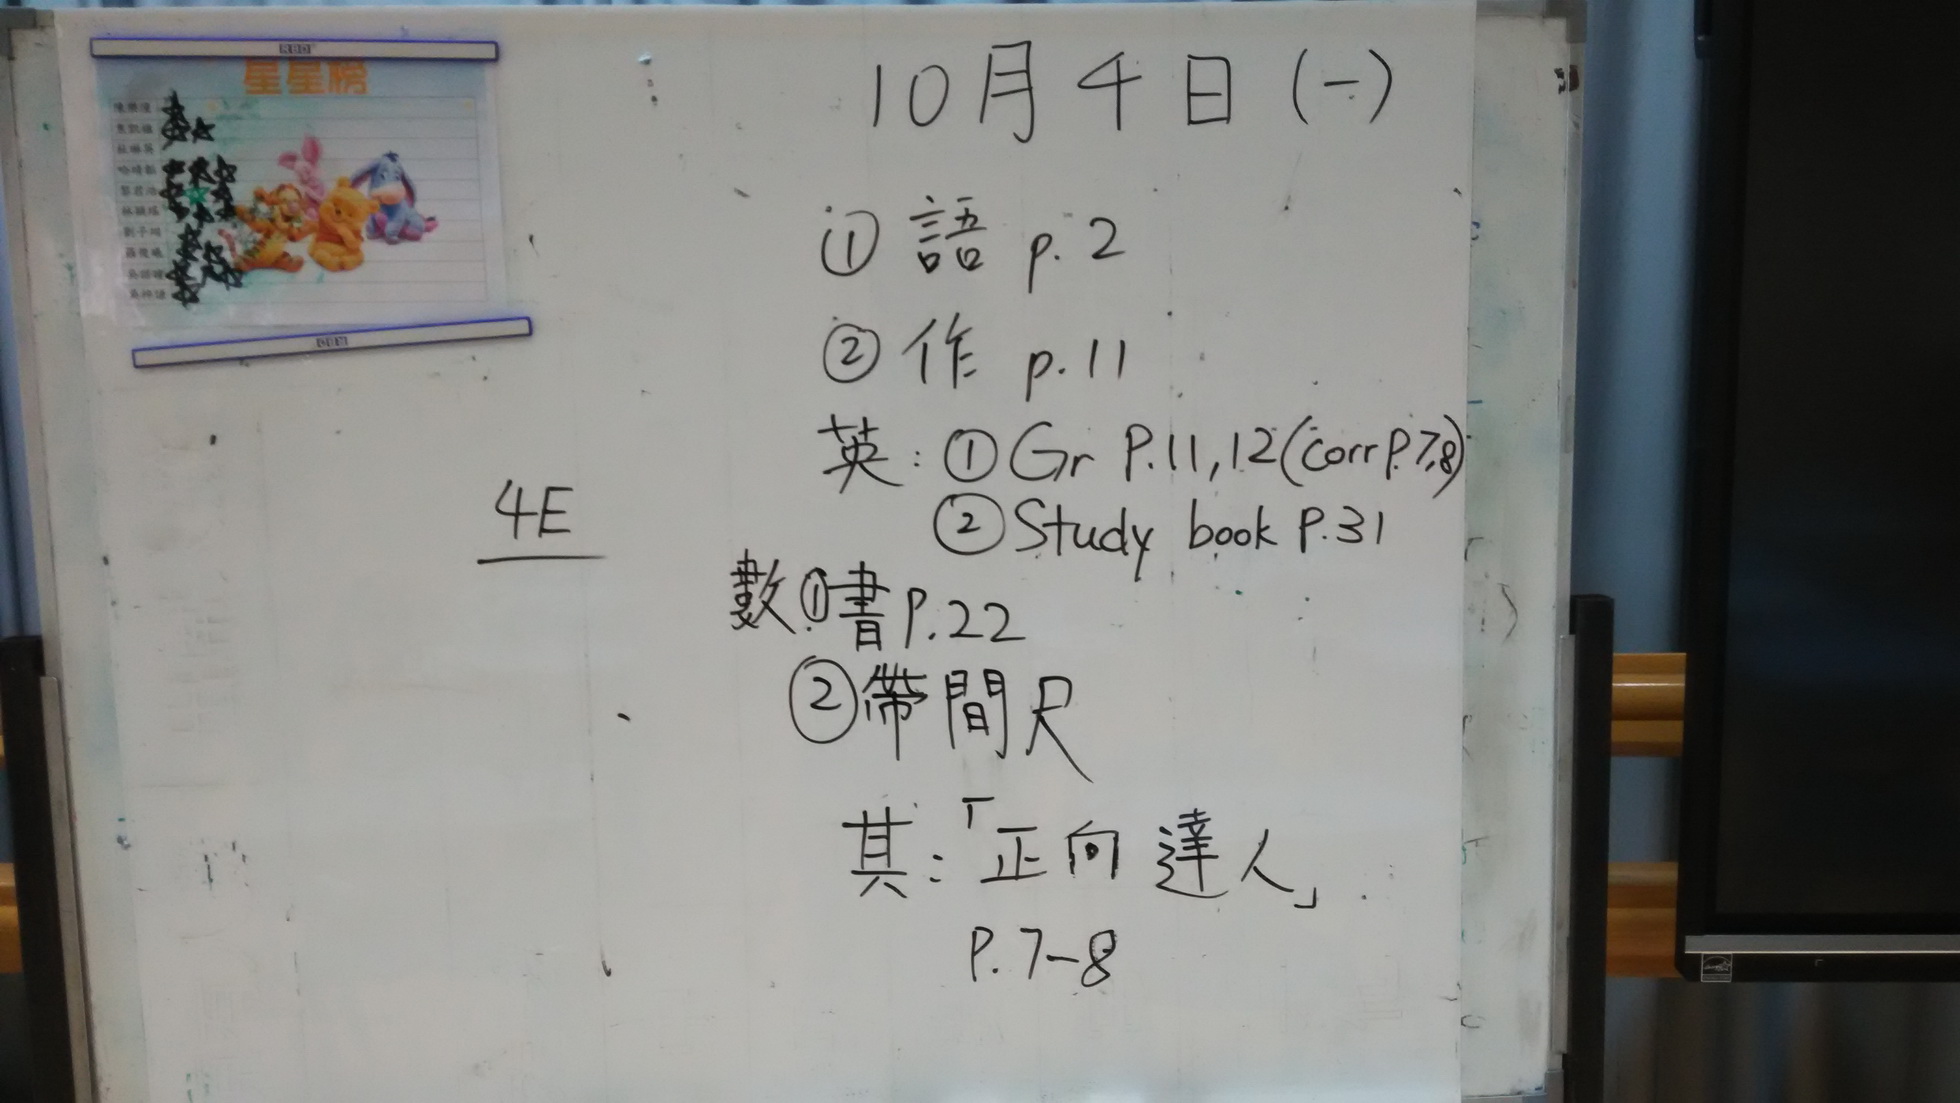 星星榜
10月4日(一)
① 語 p.2
② 作 p.11
英：① Gr P.11,12 (corr P.7,8)
② Study book P.31
4E
數 ① 書 P.22
② 帶間尺
其：「正向達人」
P.7-8